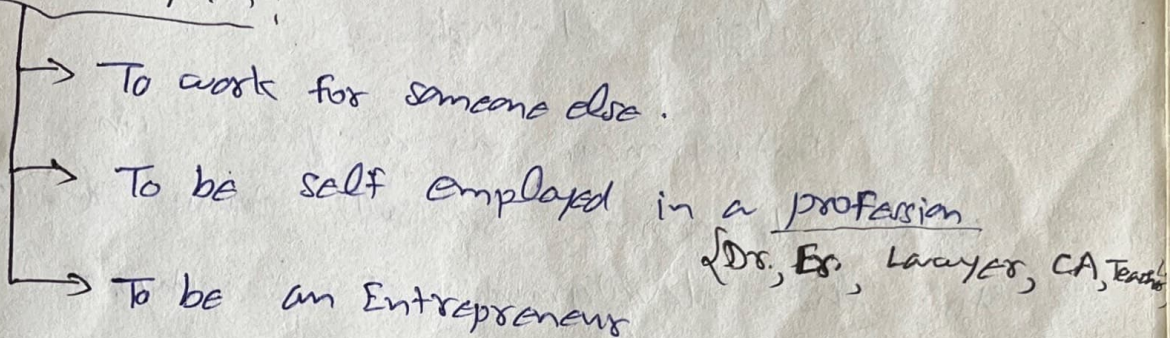 → To work for someone else.
→ To be self employed in a profession
{Dr., Er., Lawyer, CA,
→ To be an Entrepreneur